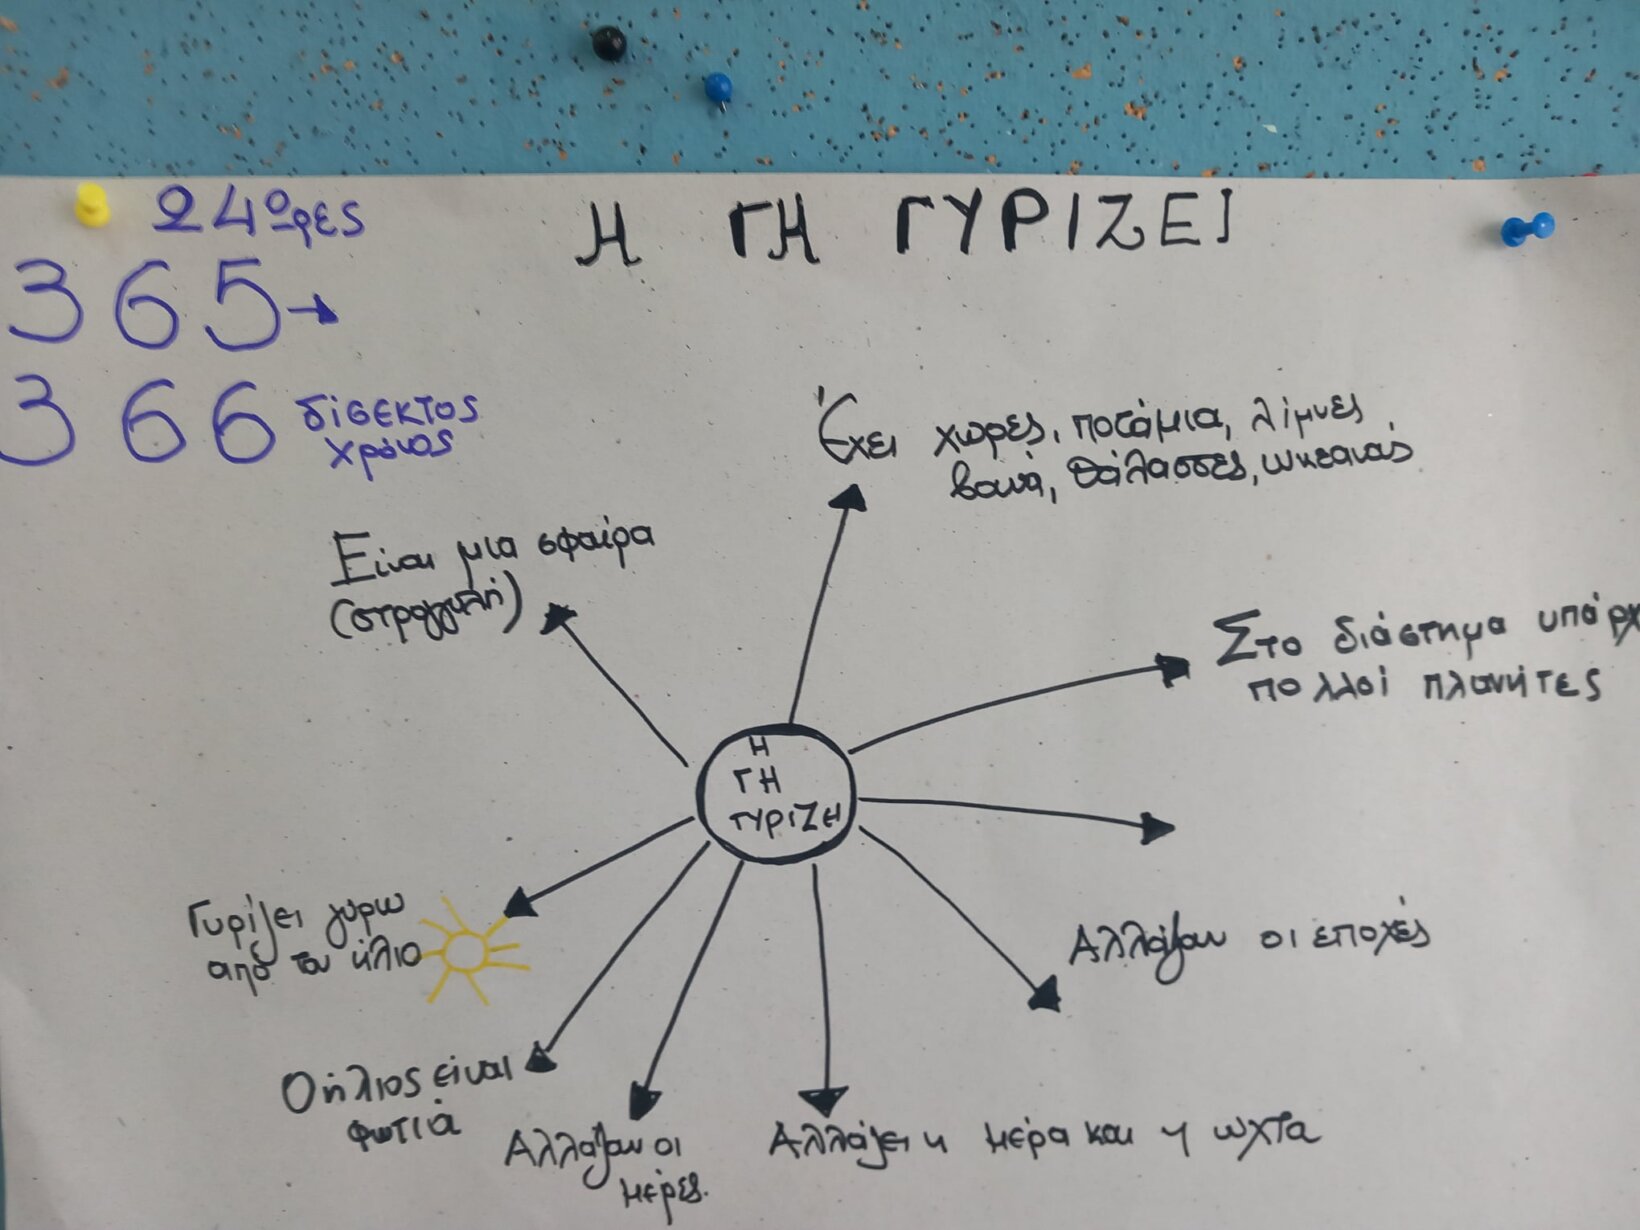 24ωρες
365→
366 δίσεκτος
χρόνος
Η ΓΗ ΓΥΡΙΖΕΙ
Έχει χώρες, ποτάμια, λίμνες
βουνά, θάλασσες, ωκεανούς
Είναι μια σφαίρα
(στρογγυλή)
Στο διάστημα υπάρχ
πολλοί πλανήτες
Η
ΓΗ
ΓΥΡΙΖΕΙ
Γυρίζει γύρω
από τον ήλιο
Αλλάζουν οι εποχές
Ο ήλιος είναι
φωτιά
Αλλάζουν οι
μέρες.
Αλλάζει η μέρα και η νύχτα